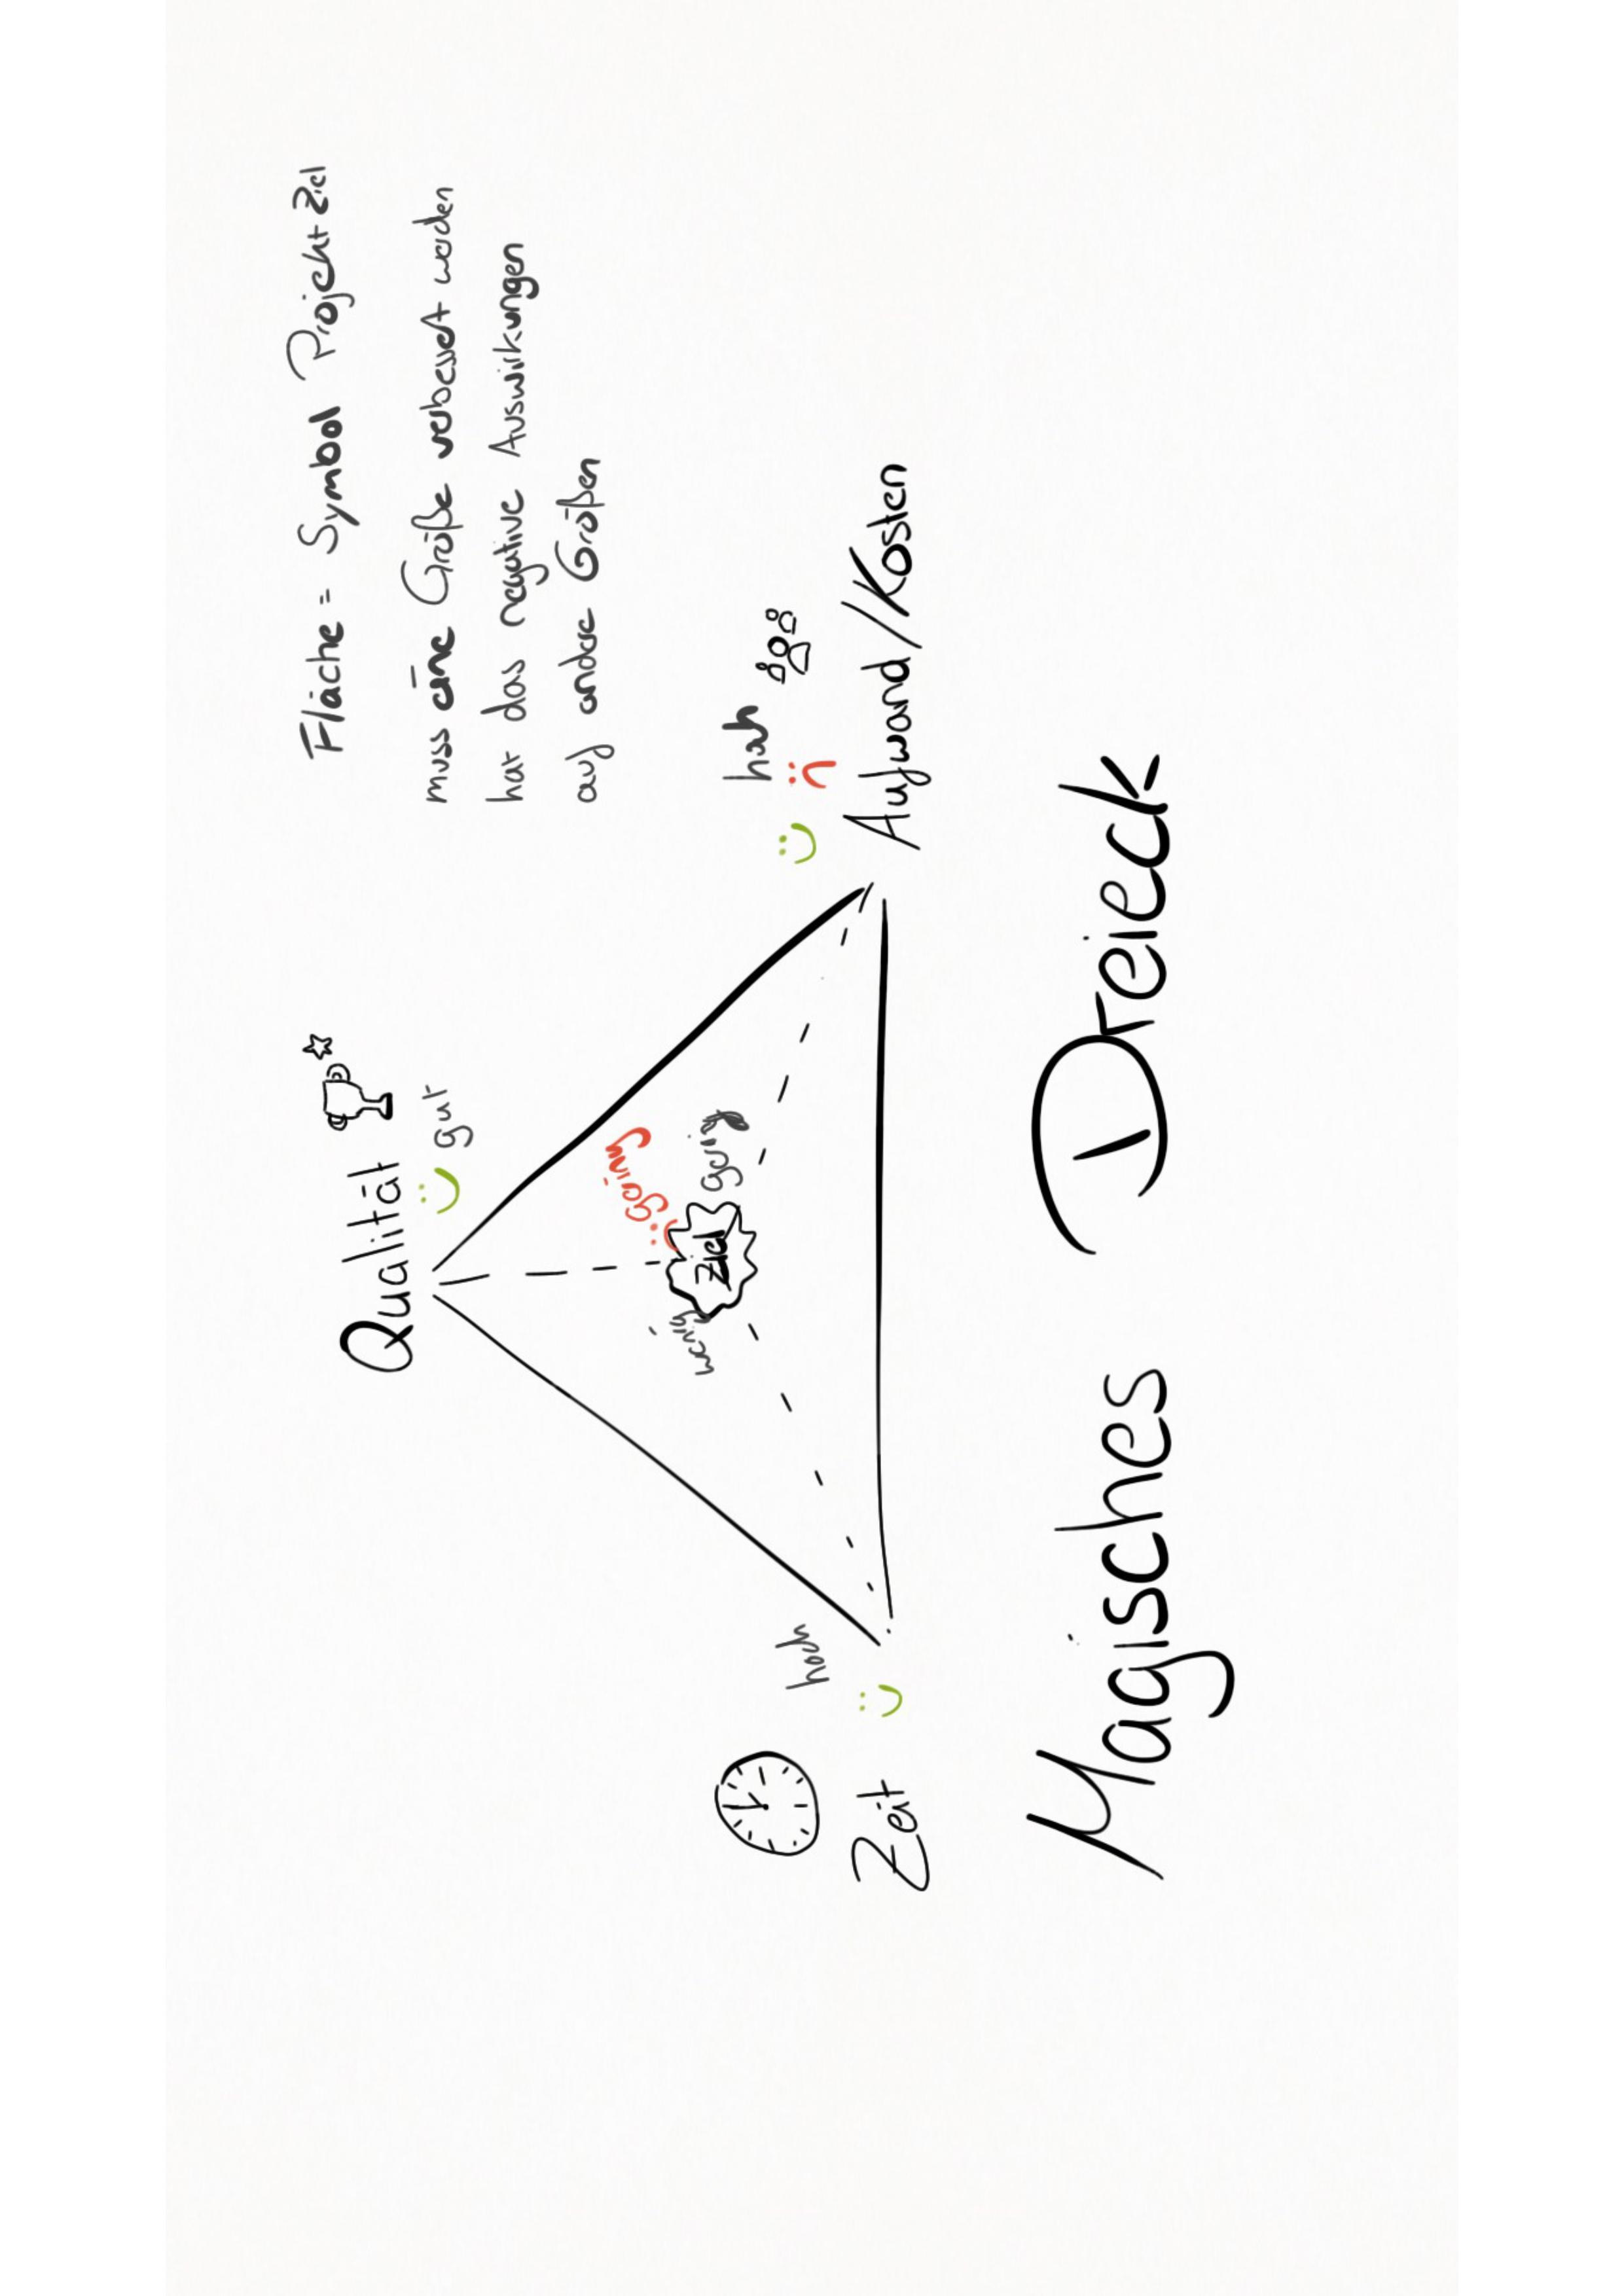 Fläche = Symbol Projekt Ziel
Qualität
gut
muss eine Größe verbessert werden
hat das negative Auswirkungen
auf andere Größen
gering
wenig
Ziel
gering
hoch
hoch
Zeit
Aufwand/Kosten
Magisches Dreieck